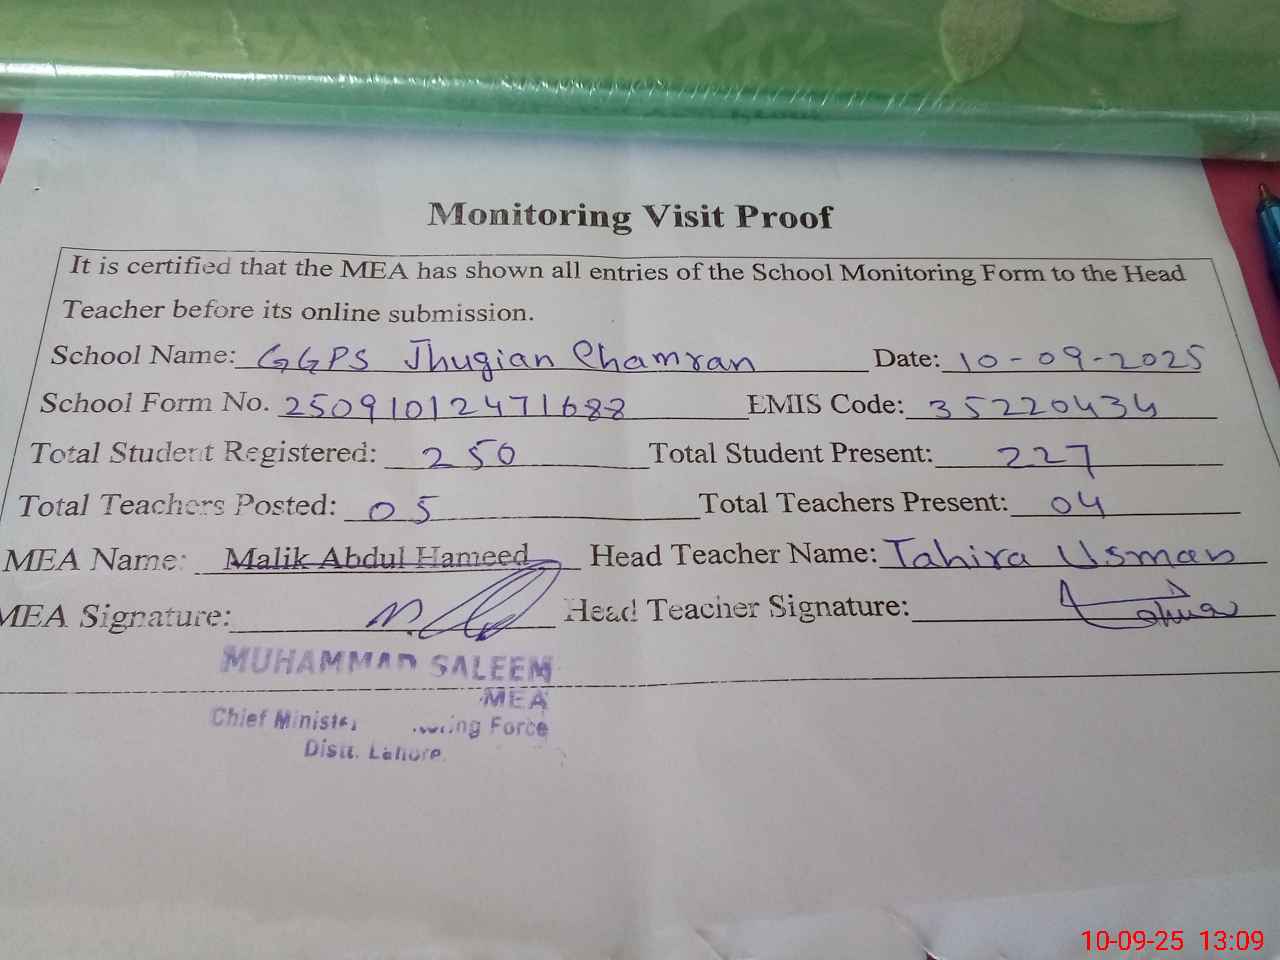 Monitoring Visit Proof
It is certified that the MEA has shown all entries of the School Monitoring Form to the Head
Teacher before its online submission.
School Name: GGPS Jhugian Chamran Date: 10-09-2025
School Form No. 25091012471688 EMIS Code: 35220434
Total Student Registered: 250 Total Student Present: 227
Total Teachers Posted: 05 Total Teachers Present: 04
MEA Name: Malik Abdul Hameed Head Teacher Name: Tahira Usman
MEA Signature: Head Teacher Signature:
MUHAMMAD SALEEM
MEA
Chief Force
Distt. Lahore
10-09-25 13:09